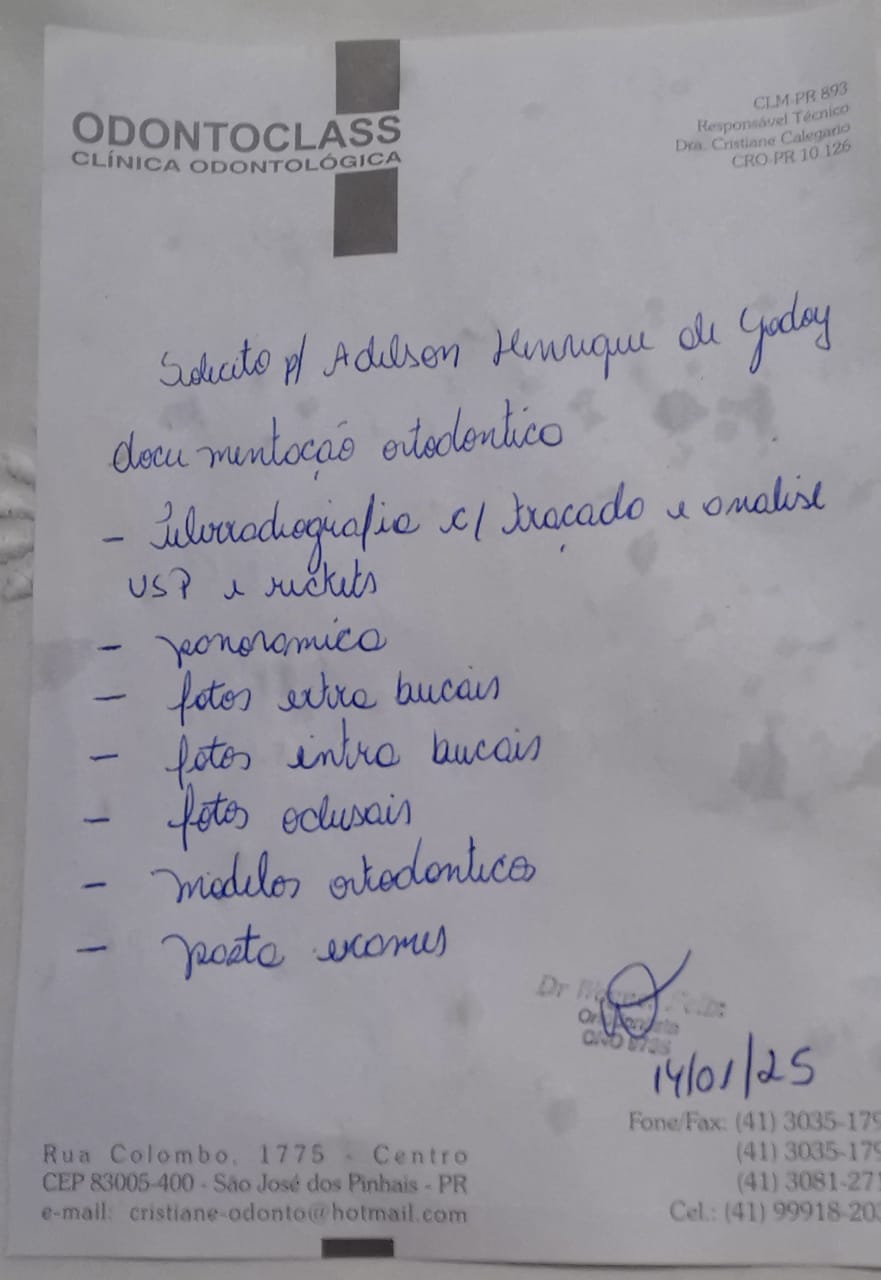 ODONTOCLASS
CLÍNICA ODONTOLÓGICA
CLM-PR 893
Responsável Técnico
Dra. Cristiane Calegario
CRO-PR 10.126
Solicito p/ Adelson Henrique de Godoy
documentação ortodontico
- Telerradiografia c/ traçado e analise
USP e rickets
- panoramica
- fotos extra bucais
- fotos intra bucais
- fotos oclusais
- modelos ortodonticos
- pasta exames
Dr
14/01/25
Fone/Fax: (41) 3035-179
(41) 3035-179
(41) 3081-271
Cel.: (41) 99918-203
Rua Colombo, 1775 - Centro
CEP 83005-400 - São José dos Pinhais - PR
e-mail: cristiane-odonto@hotmail.com